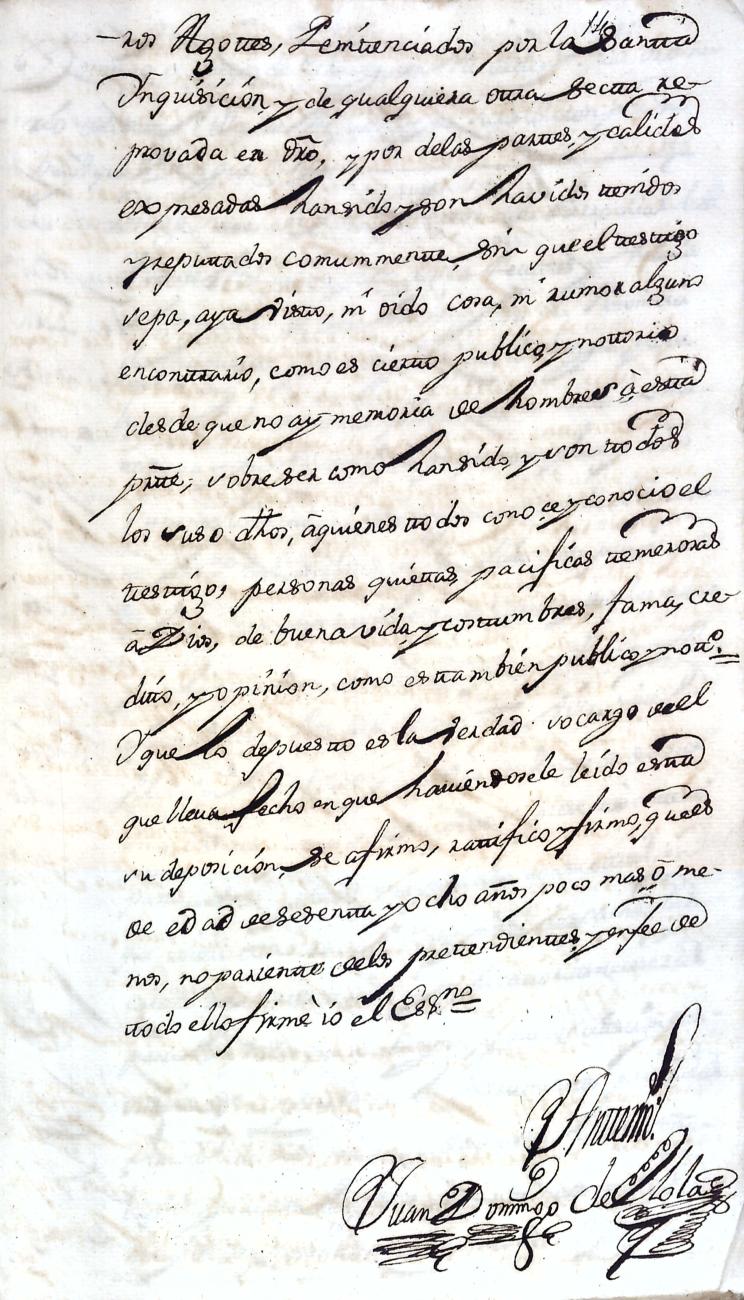 -ros Agottes, Penittenciados por la Santta
Ynquisición, y de qualquiera ottra Sectta re-
provada en dro, y por de las parttes, y calidades
expresadas han sido y son havidos ttenidos
y reputtados comunmentte, sin que el ttesttigo
sepa, aya vistto, ni oido cosa, ni rumor alguno
en conttrario, como es ciertto publico, y nottorio
desde que no ay memoria de hombres à estta
partte; sobre ser como han sido, y son ttodos
los suso dhos, à quienes ttodos conoce y conocio el
ttesttigo, personas quiettas, pacificas ttemerosas
à Dios, de buena vida, y costtumbres, fama, cre-
ditto, y opinion, como es ttambién publico, y notto.=
Y que lo depuestto es la Verdad so cargo de el
que lleva fecho en que haviendosele leido estta
su deposición, se afirmo, rattifico, y firmo, que es
de edad de sesentta y ocho años poco mas ò me-
nos, no parientte de los prettendienttes, y en fee de
ttodo ello firmè io el Essno=
Anttemi.
Juan Domingo de Olola